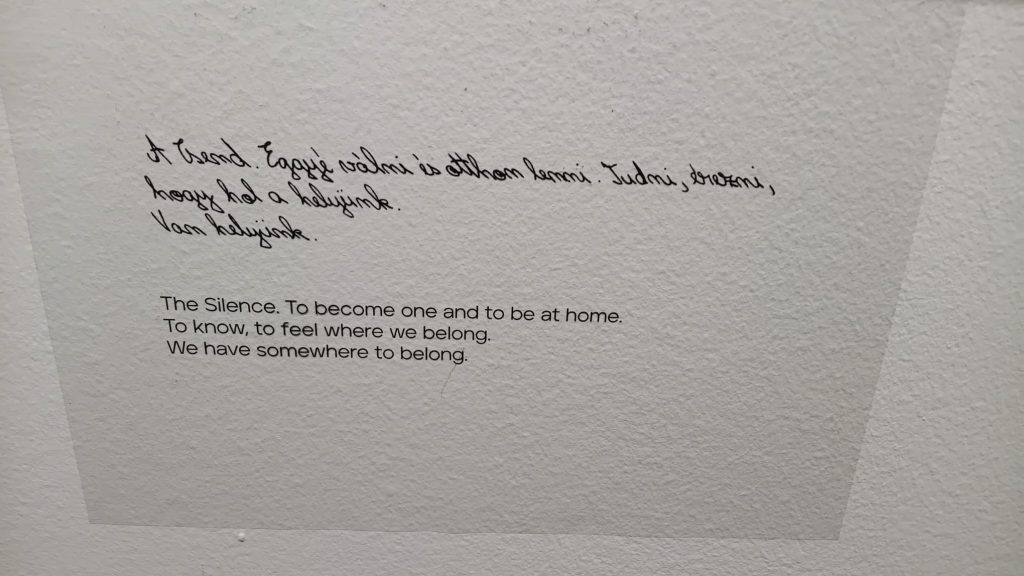 A Csend. Eggyé válni és otthon lenni. Tudni, érezni,
hogy hol a helyünk.
Van helyünk.
The Silence. To become one and to be at home.
To know, to feel where we belong.
We have somewhere to belong.